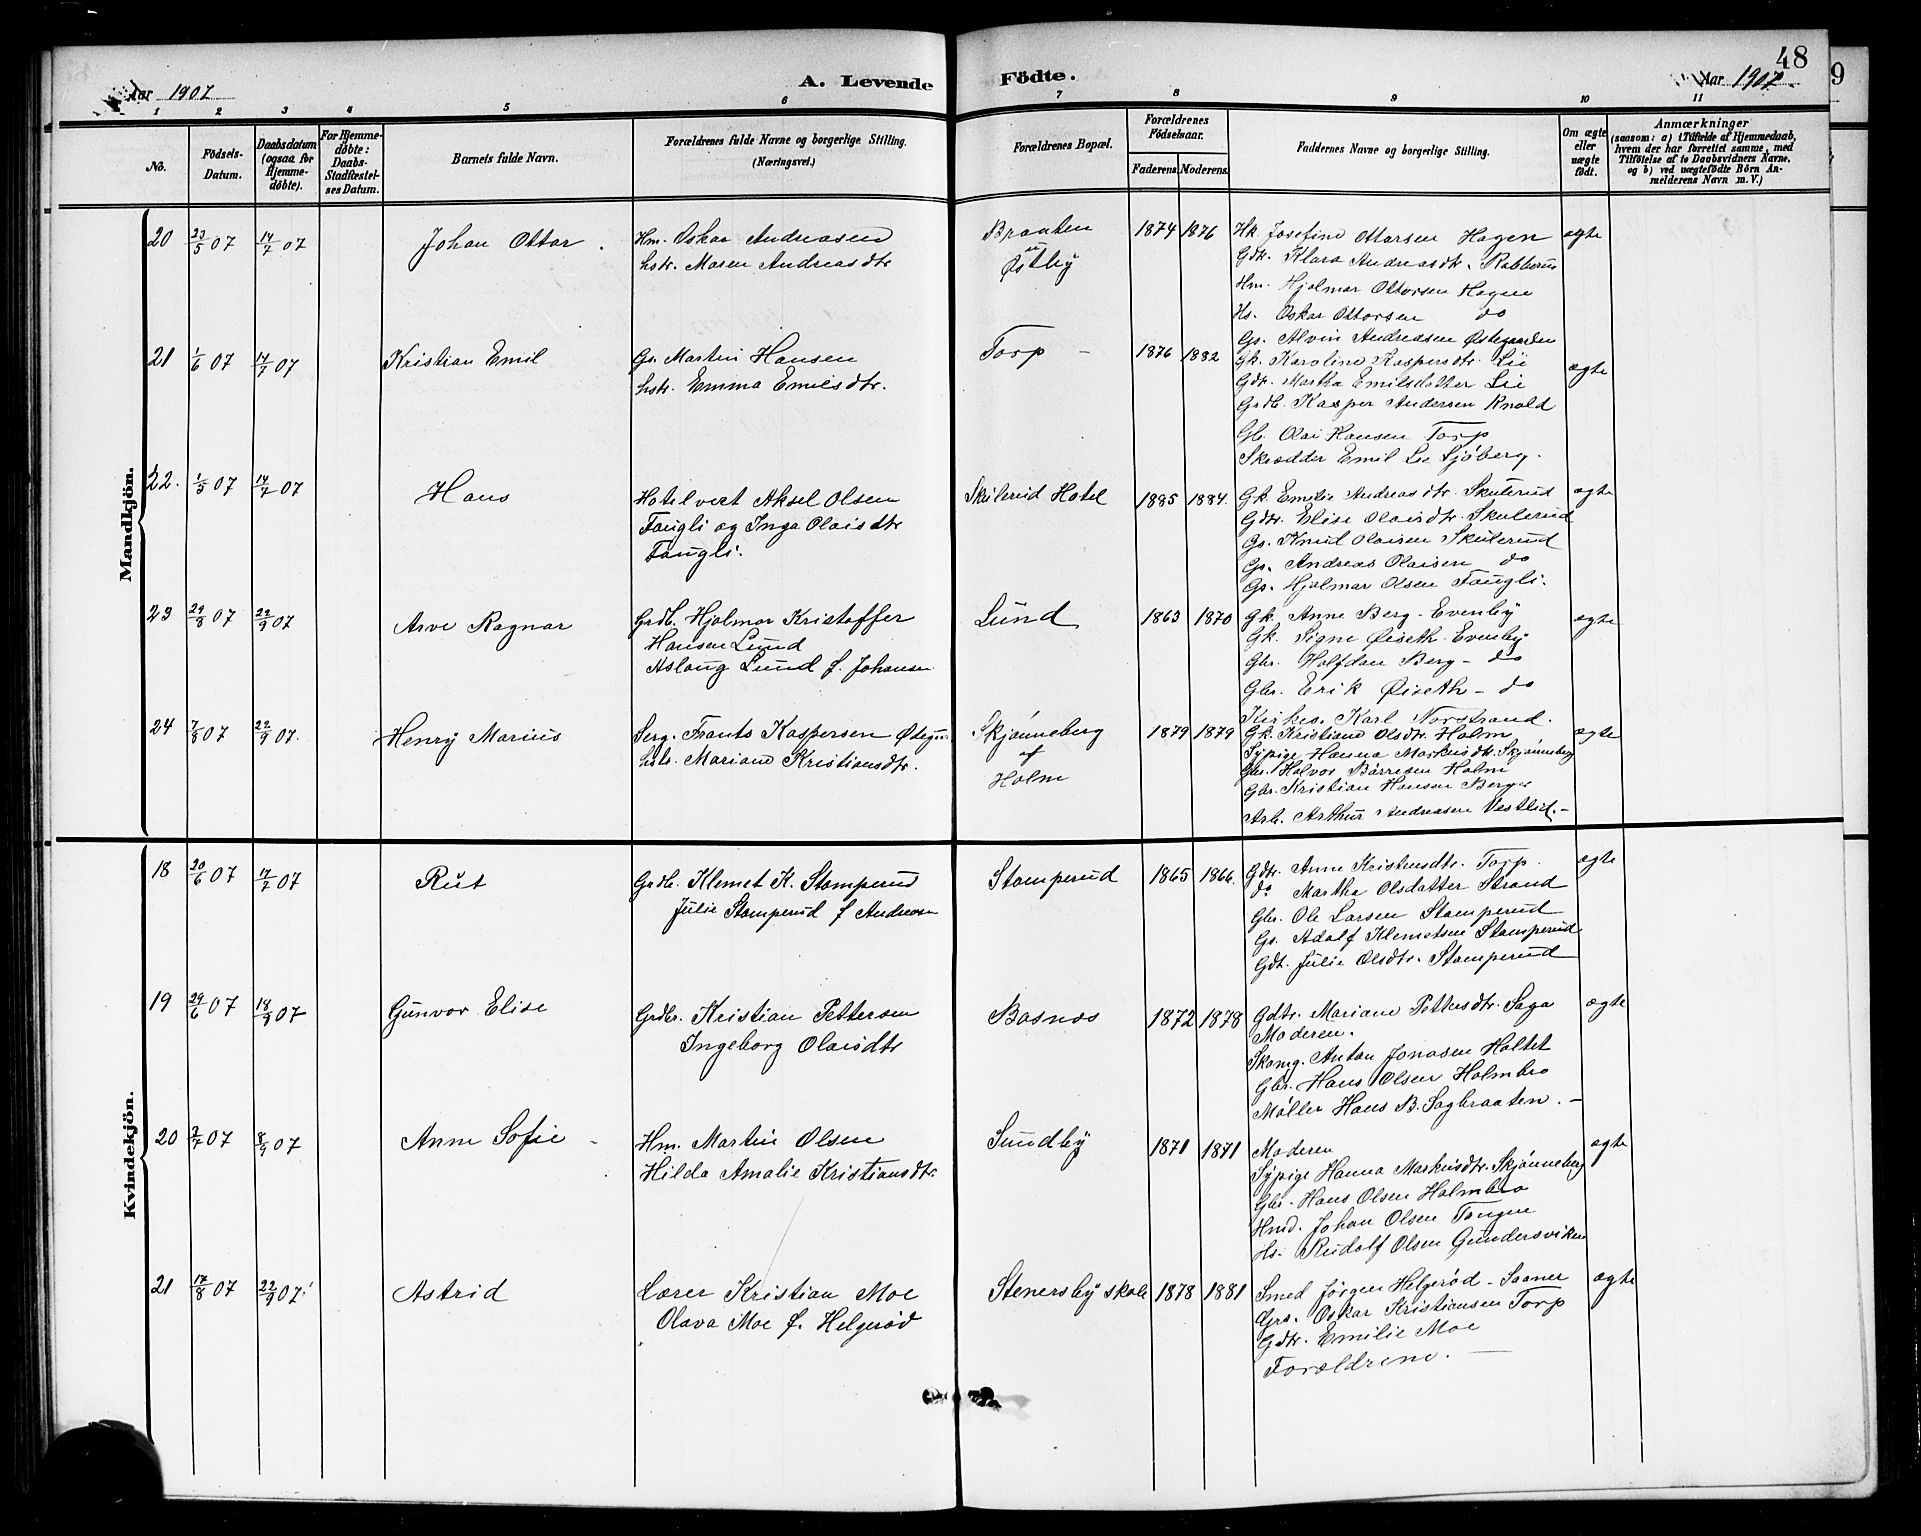 48
9
Aar 1907
A. Levende Födte.
Aar 1907.
1 2 3 4 5 6 7 8 9 10 11
No.
Födsels-Datum.
Daabsdatum (ogsaa for Hjemme-döbte).
For Hjemme-döbte: Daabs-Stadfæstel-ses Datum.
Barnets fulde Navn.
Forældrenes fulde Navne og borgerlige Stilling.
(Næringsvei.)
Forældrenes Bopæl.
Forældrenes Födselsaar.
Faderens. Moderens.
Faddernes Navne og borgerlige Stilling.
Om ægte eller uægte födt.
Anmærkninger
(saasom: a) i Tilfælde af Hjemmedaab,
hvem der har forrettet samme, med
Tilföielse af to Daabsvidners Navne,
og b) ved uægtefödte Börn An-
melderens Navn m. V.)
Mandkjön.
20 23/5 07 14/7 07 Johan Ottar. Hm. Oskar Andreasen
hstr. Maren Andreasdtr
Braaten
u
Østby
1874 1876 Hk. Josefine Ottarsen Hagen ægte
Gdtr. Klara Andreasdtr.
Hm. Hjalmar Ottersen Hagen
Hs. Oskar Ottersen do
Gs. Alvin Andreasen Østegaarden
21 1/6 07 14/7 07 Kristian Emil Gs. Martin Hansen
hstr. Emma Emilsdtr.
Torp -
1876 1882 Gk. Karoline Kaspersdtr. Lie ægte
Gdtr. Martha Emilsdatter Lie
Grdb. Kasper Andersen Knold
Gb. Olai Hansen Torp
Skrædder Emil Lie Sjöberg.
22. 1/5 07 14/7 07 Hans Hotelvert Aksel Olsen
Taugli og Inga Olaisdtr
Taugli.
Skulerud Hotel
1885 1884. Gk. Emilie Andreasdtr. Skulerud ægte
Gdtr. Elise Olaisdtr. Skulerud
Gs. Knut Olaisen Skulerud
Gs. Andreas Olaisen do
Gs. Hjalmar Olsen Taugli.
23 29/8 07 22/9 07 Arve Ragnar Grdb. Hjalmar Kristoffer
Hansen Lund
Aslaug Lund f. Johansen
Lund
1863 1870 Gk. Anne Berg - Evenby ægte
Gk. Signe Øiseth - Evenby
Gbr. Halfdan Berg - do
Gbr. Erik Øiseth - do
Kirkes. Karl Norstrand.
24 7/8 07 22/9 07. Henry Marius Serg. Frants Kaspersen
hstr. Mariane Kristiansdtr.
Skjønneberg
af
Holm
1879 1879 Gk. Kristiane Olsdtr. Holm ægte
Sypige Hanna Markusdtr. Skjønneberg
Gbr. Halvor Børresen Holm
Gbr. Kristian Hansen Berger
Arb. Arthur Andreasen Vestlid. -
Kvindekjön.
18 20/6 07 14/7 07 Rut Grdb. Klemet K. Stamperud
Julie Stamperud f Andresen
Stamperud
1865 1866. Gdtr. Anne Kristensdtr. Torp. ægte
do Martha Olsdatter Strand
Gbr. Ole Larsen Stamperud
Gs. Adolf Klemetsen Stamperud
Gdt. Julie Olsdtr. Stamperud
19 29/6 07 18/9 07 Gunvor Elise Grdbr. Kristian Pettersen
Ingeborg Olaisdtr
Basnes
1872 1878 Gdtr. Mariane Pettersdtr. Saga ægte
Moderen.
Skomg. Anton Jonasen Holtet
Gbr. Hans Olsen Holmbro
Møller Hans B. Sagbraaten. -
20 3/7 07 8/9 07 Anne Sofie - Hm. Martin Olsen
Hilda Amalie Kristiansdtr.
Sundby
1871 1871 Moderen ægte
Sypige Hanna Markusdtr. Skjønneberg
Gbr. Hans Olsen Holmbro
Hmd. Johan Olsen Tangen
Hs. Rudolf Olsen Gundersviken
21 17/8 07 22/9 07. Astrid Lærer Kristian Moe
Olava Moe f. Helgerød
Stenersby skole
1878 1881 Smed Jørgen Helgerød - Saaner ægte
Grs. Oskar Kristiansen Torp
Gdtr. Emilie Moe
Forældrene. -